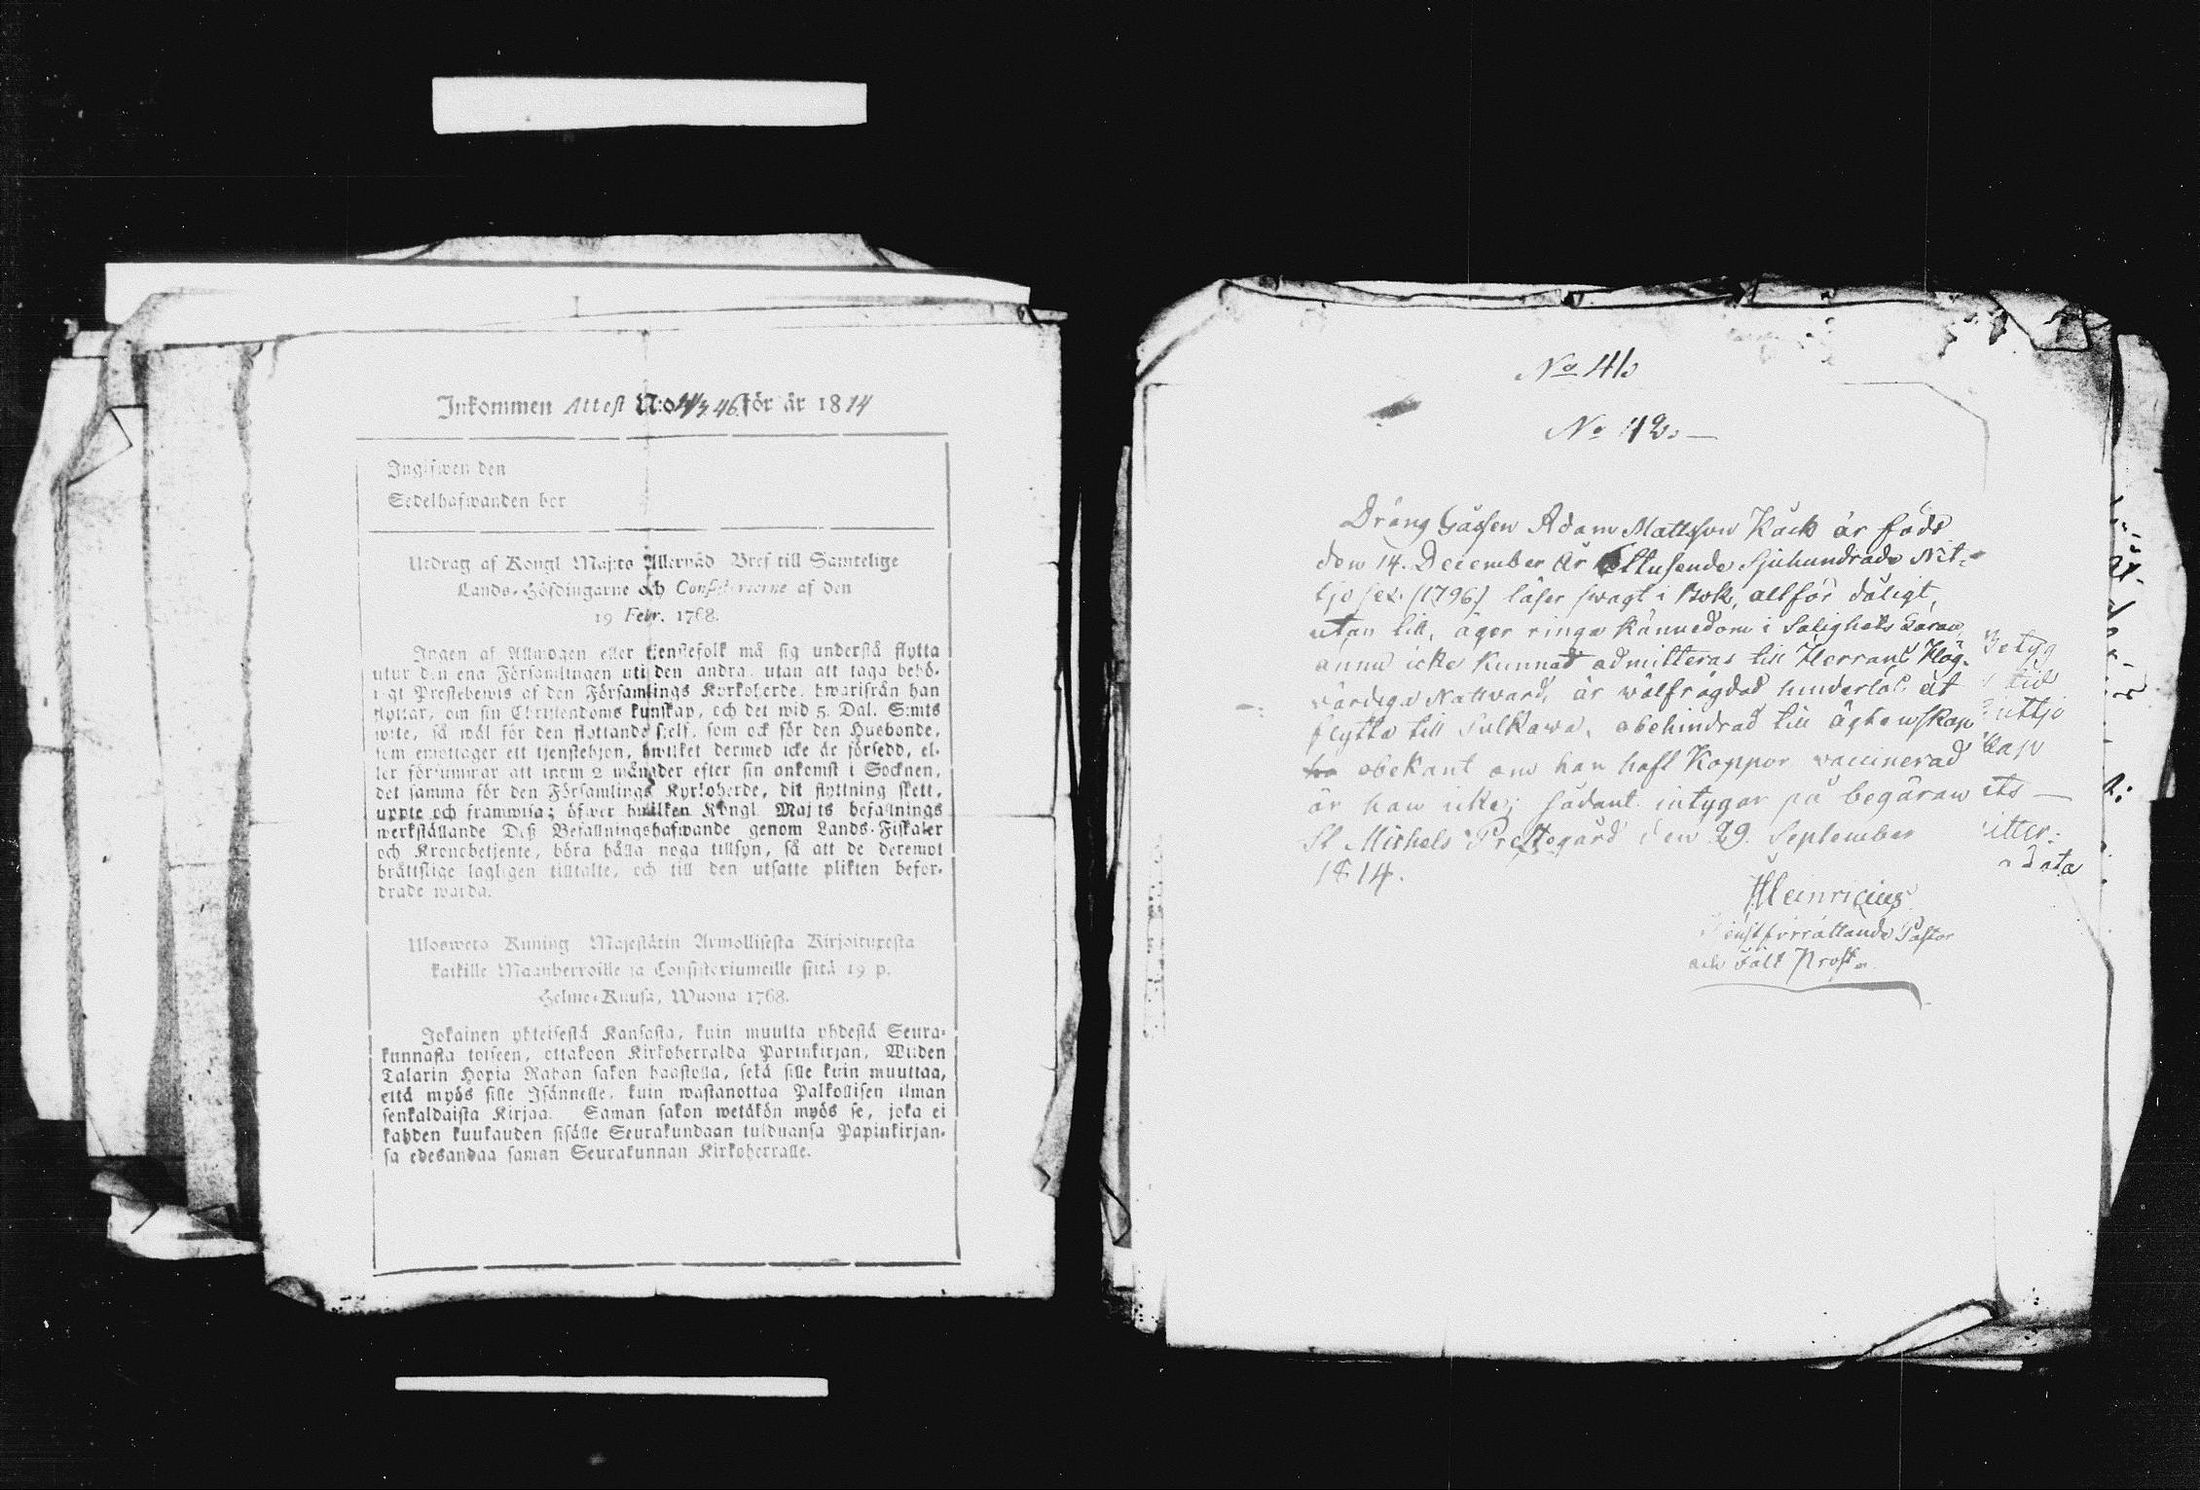 Inkommen Attest N:o 43 46 för år 1814
Ingifwen den
Sedelhafwanden bor
Utdrag af Kongl Maj:ts Allernåd Bref till Samtelige
Lands-Höfdingarne och Consistorierne af den
19 Febr. 1768.
Ingen af Allmogen eller tjenstefolk må sig understå flytta
utur den ena Församlingen uti den andra, utan att taga behö-
rigt Prestebewis af den Församlings Kyrkoherde, hwarifrån han
flyttar, om sin Christendoms kunskap, och det wid 5. Dal. S:mts
wite, så wäl för den flyttande sjelf, som ock för den Husbonde,
som emottager ett tjenstehjon, hwilket dermed icke är försedd, el-
ler försummar att inom 2 månader efter sin ankomst i Socknen,
det samma för den Församlings Kyrkoherde, dit flyttning skett,
uppte och framwisa; öfwer hwilken Kongl Maj ts befallnings
werkställande Deß Befallningshafwande genom Lands-Fiskaler
och Kronobetjente, böra hålla noga tillsyn, så att de deremot
bråttslige lagligen tilltalte, och till den utsatte plikten befor-
drade warda.
Ulosweto Kuning Majestätin Armollisesta Kirjoituxesta
kaikille Maanherroille ja Consistoriumeille siitä 19 p.
Helme-Kuusa, Wuona 1768.
Jokainen yhteisestä Kansasta, kuin muutta yhdestä Seura-
kunnasta toiseen, ottakoon Kirkoherralda Papinkirjan, Wiiden
Talarin Hopia Rahan sakon haastolla, sekä sille kuin muuttaa,
että myös sille Isännelle, kuin wastanottaa Palkollisen ilman
senkaldaista Kirjaa. Saman sakon wetäkön myös se, joka ei
kahden kuukauden sisälle Seurakundaan tulduansa Papinkirjan-
sa edesandaa saman Seurakunnan Kirkoherralle.
No 43
No 42. —
Dräng Gåssen Adam Mattsson Käck är född
den 14. December År Ettusende Sjuhundrade Nit-
tjo sex (1796) läser swagt i Bok, allför dåligt,
utan till, äger ringa Kännedom i Salighets Läran,
ännu icke Kunnat admitteras till Herrans Hög-
värdiga Nattward, är wälfrägdad hinderlös at
flytta till Sulkawa, obehindrad till ägtenskap
obekant om han haft Koppor vaccinerad
är han icke; sådant intygar på begäran
St Michels Prestegård den 29. September
1814.
Heinricius
Tjenstförrättande Pastor
och vält Prost.
Betyg
tid
uttjo
skap
ets —
itter:
data